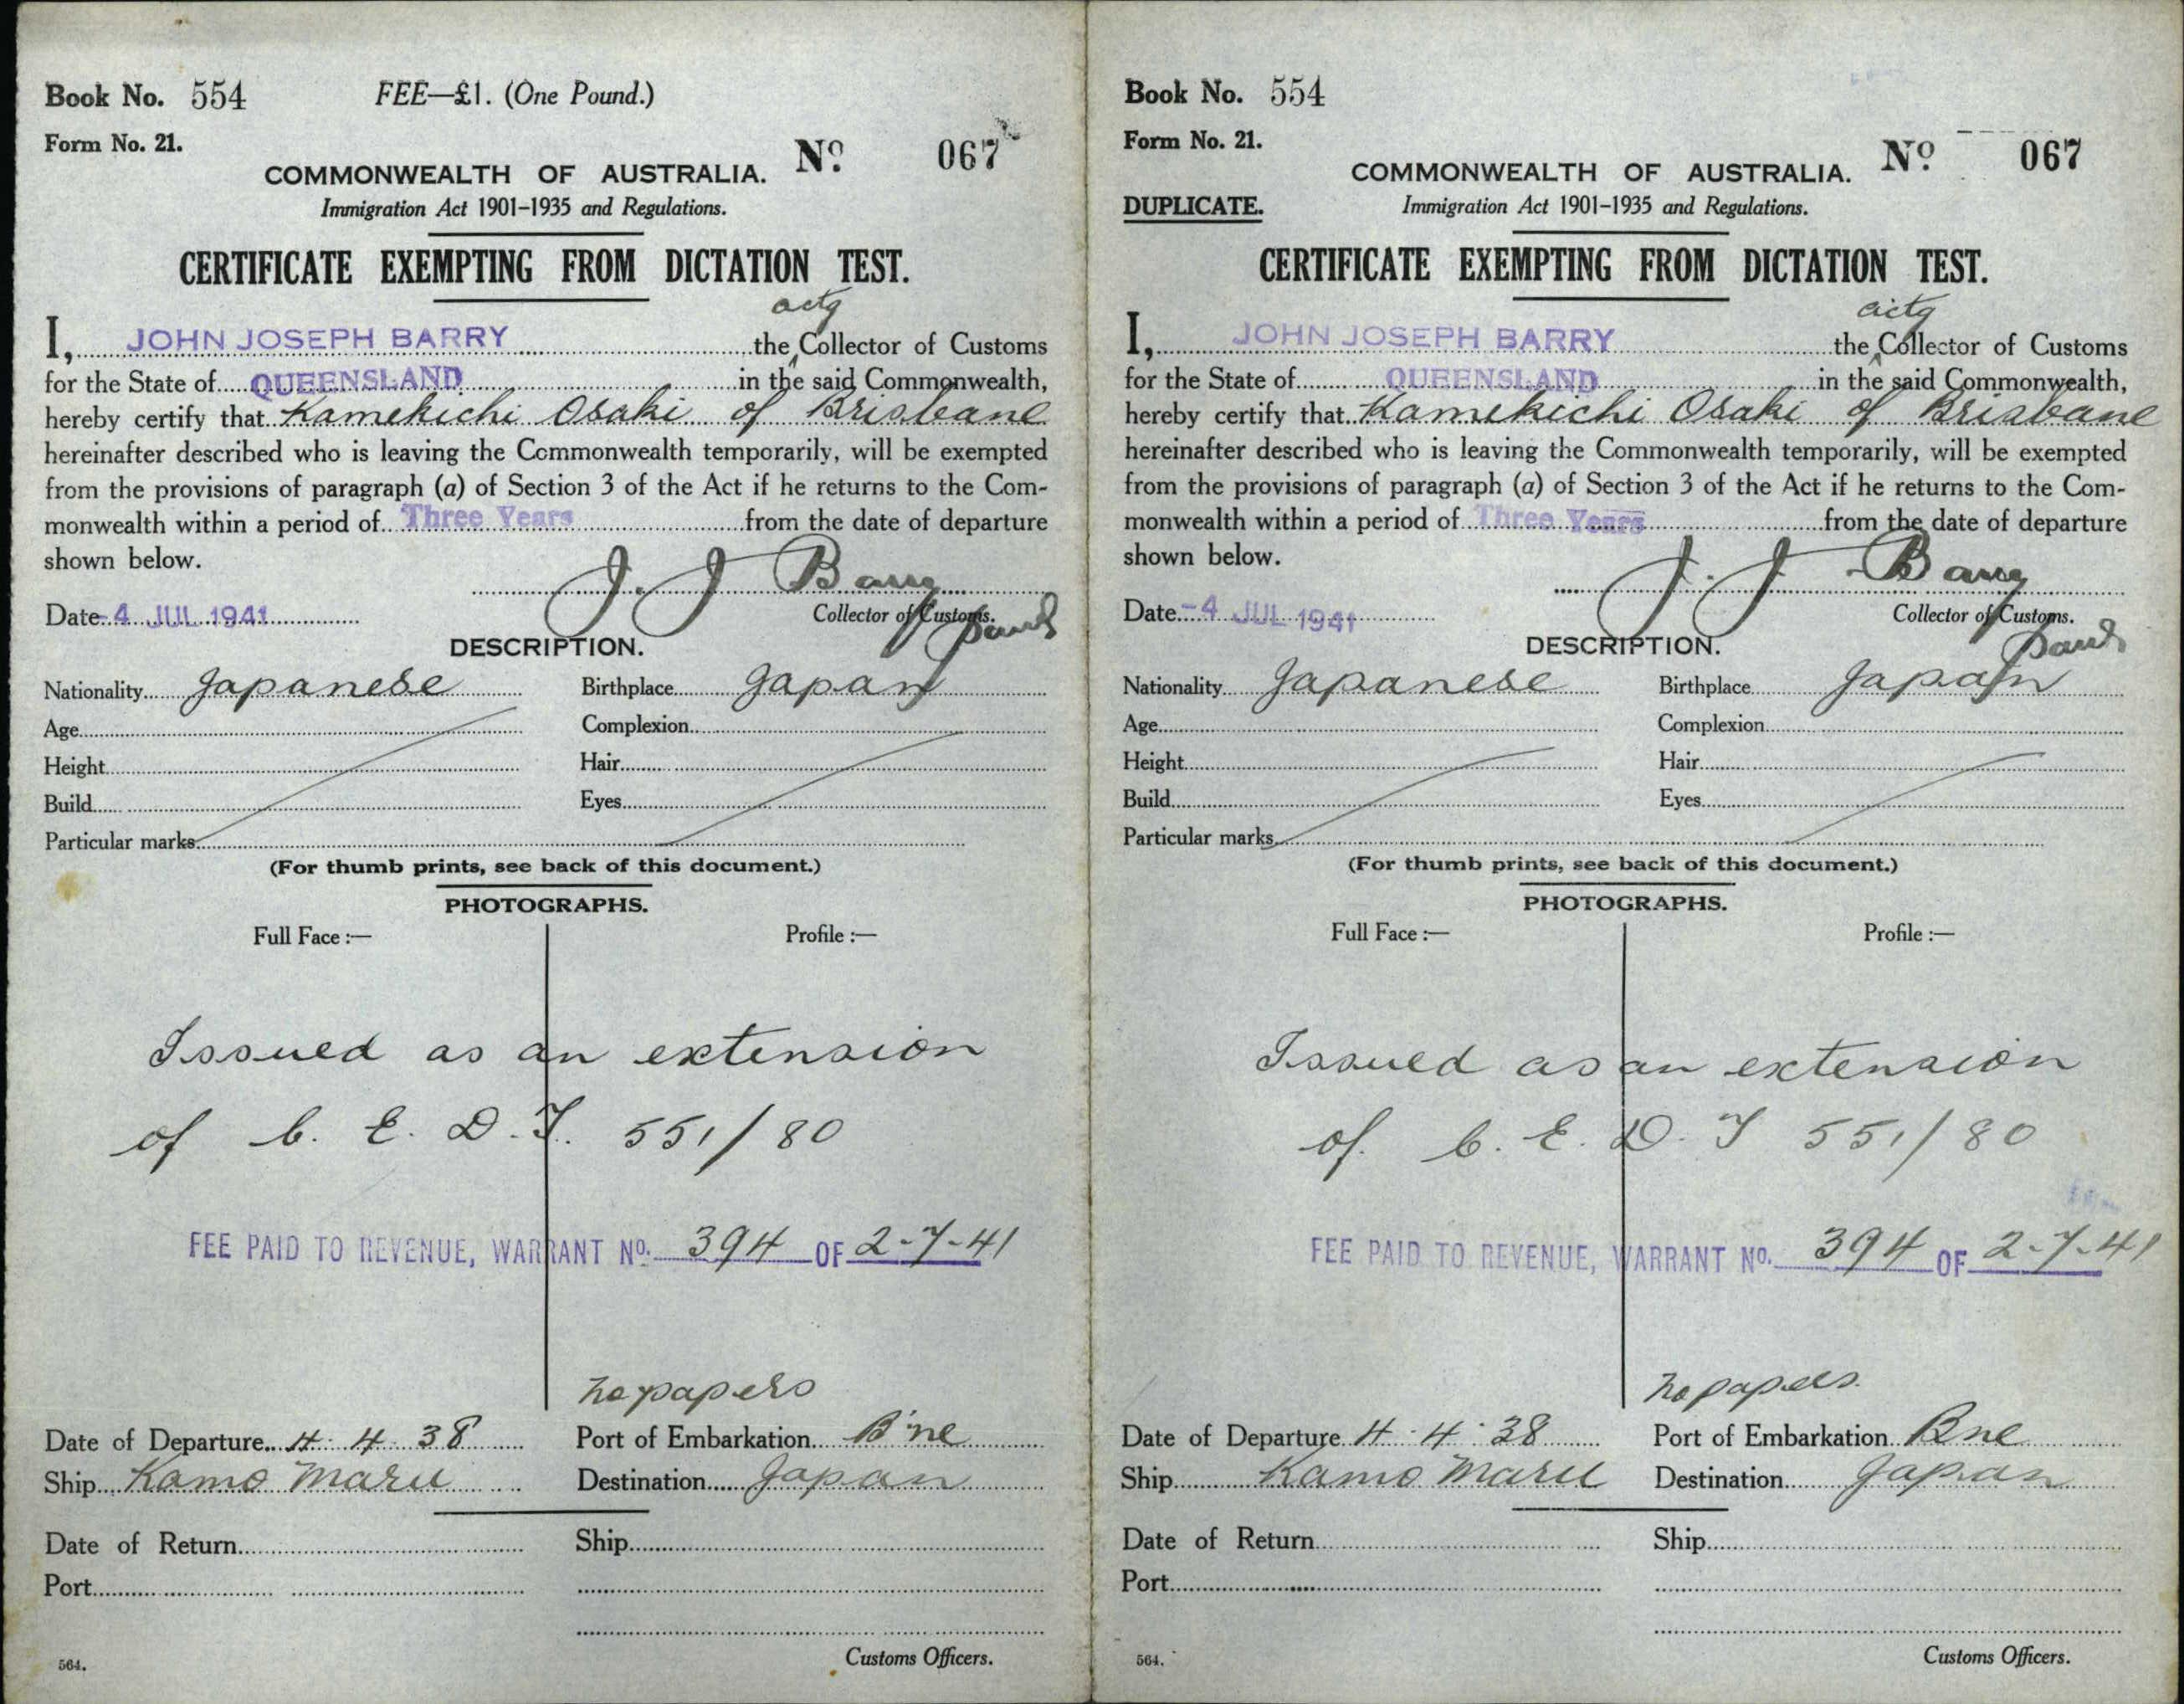 Book No. 554 FEE—£1. (One Pound.)
Form No. 21.
No. 067
COMMONWEALTH OF AUSTRALIA.
Immigration Act 1901-1935 and Regulations.
CERTIFICATE EXEMPTING FROM DICTATION TEST.
actg
I, JOHN JOSEPH BARRY the Collector of Customs
for the State of QUEENSLAND in the said Commonwealth,
hereby certify that Kamekichi Osaki of Brisbane
hereinafter described who is leaving the Commonwealth temporarily, will be exempted
from the provisions of paragraph (a) of Section 3 of the Act if he returns to the Com-
monwealth within a period of Three Years from the date of departure
shown below.
J. J Barry
Date -4 JUL 1941 Collector of Customs.
DESCRIPTION.
Nationality Japanese Birthplace Japan
Age Complexion
Height Hair
Build Eyes
Particular marks
(For thumb prints, see back of this document.)
PHOTOGRAPHS.
Full Face :— Profile :—
Issued as an extension
of C. E. D. T. 551/80
FEE PAID TO REVENUE, WARRANT No. 394 OF 2-7-41
no papers
Date of Departure 4. 4. 38 Port of Embarkation B'ne
Ship Kamo Maru Destination Japan
Date of Return Ship
Port
Customs Officers.
564.
Book No. 554
Form No. 21.
No. 067
COMMONWEALTH OF AUSTRALIA.
DUPLICATE. Immigration Act 1901-1935 and Regulations.
CERTIFICATE EXEMPTING FROM DICTATION TEST.
actg
I, JOHN JOSEPH BARRY the Collector of Customs
for the State of QUEENSLAND in the said Commonwealth,
hereby certify that Kamekichi Osaki of Brisbane
hereinafter described who is leaving the Commonwealth temporarily, will be exempted
from the provisions of paragraph (a) of Section 3 of the Act if he returns to the Com-
monwealth within a period of Three Years from the date of departure
shown below.
J. J Barry
Date -4 JUL 1941 Collector of Customs.
DESCRIPTION.
Nationality Japanese Birthplace Japan
Age Complexion
Height Hair
Build Eyes
Particular marks
(For thumb prints, see back of this document.)
PHOTOGRAPHS.
Full Face :— Profile :—
Issued as an extension
of C. E. D. T 551/80
FEE PAID TO REVENUE, WARRANT No. 394 OF 2-7-41
no papers.
Date of Departure 4. 4. 38 Port of Embarkation Bne
Ship Kamo Maru Destination Japan
Date of Return Ship
Port
Customs Officers.
564.